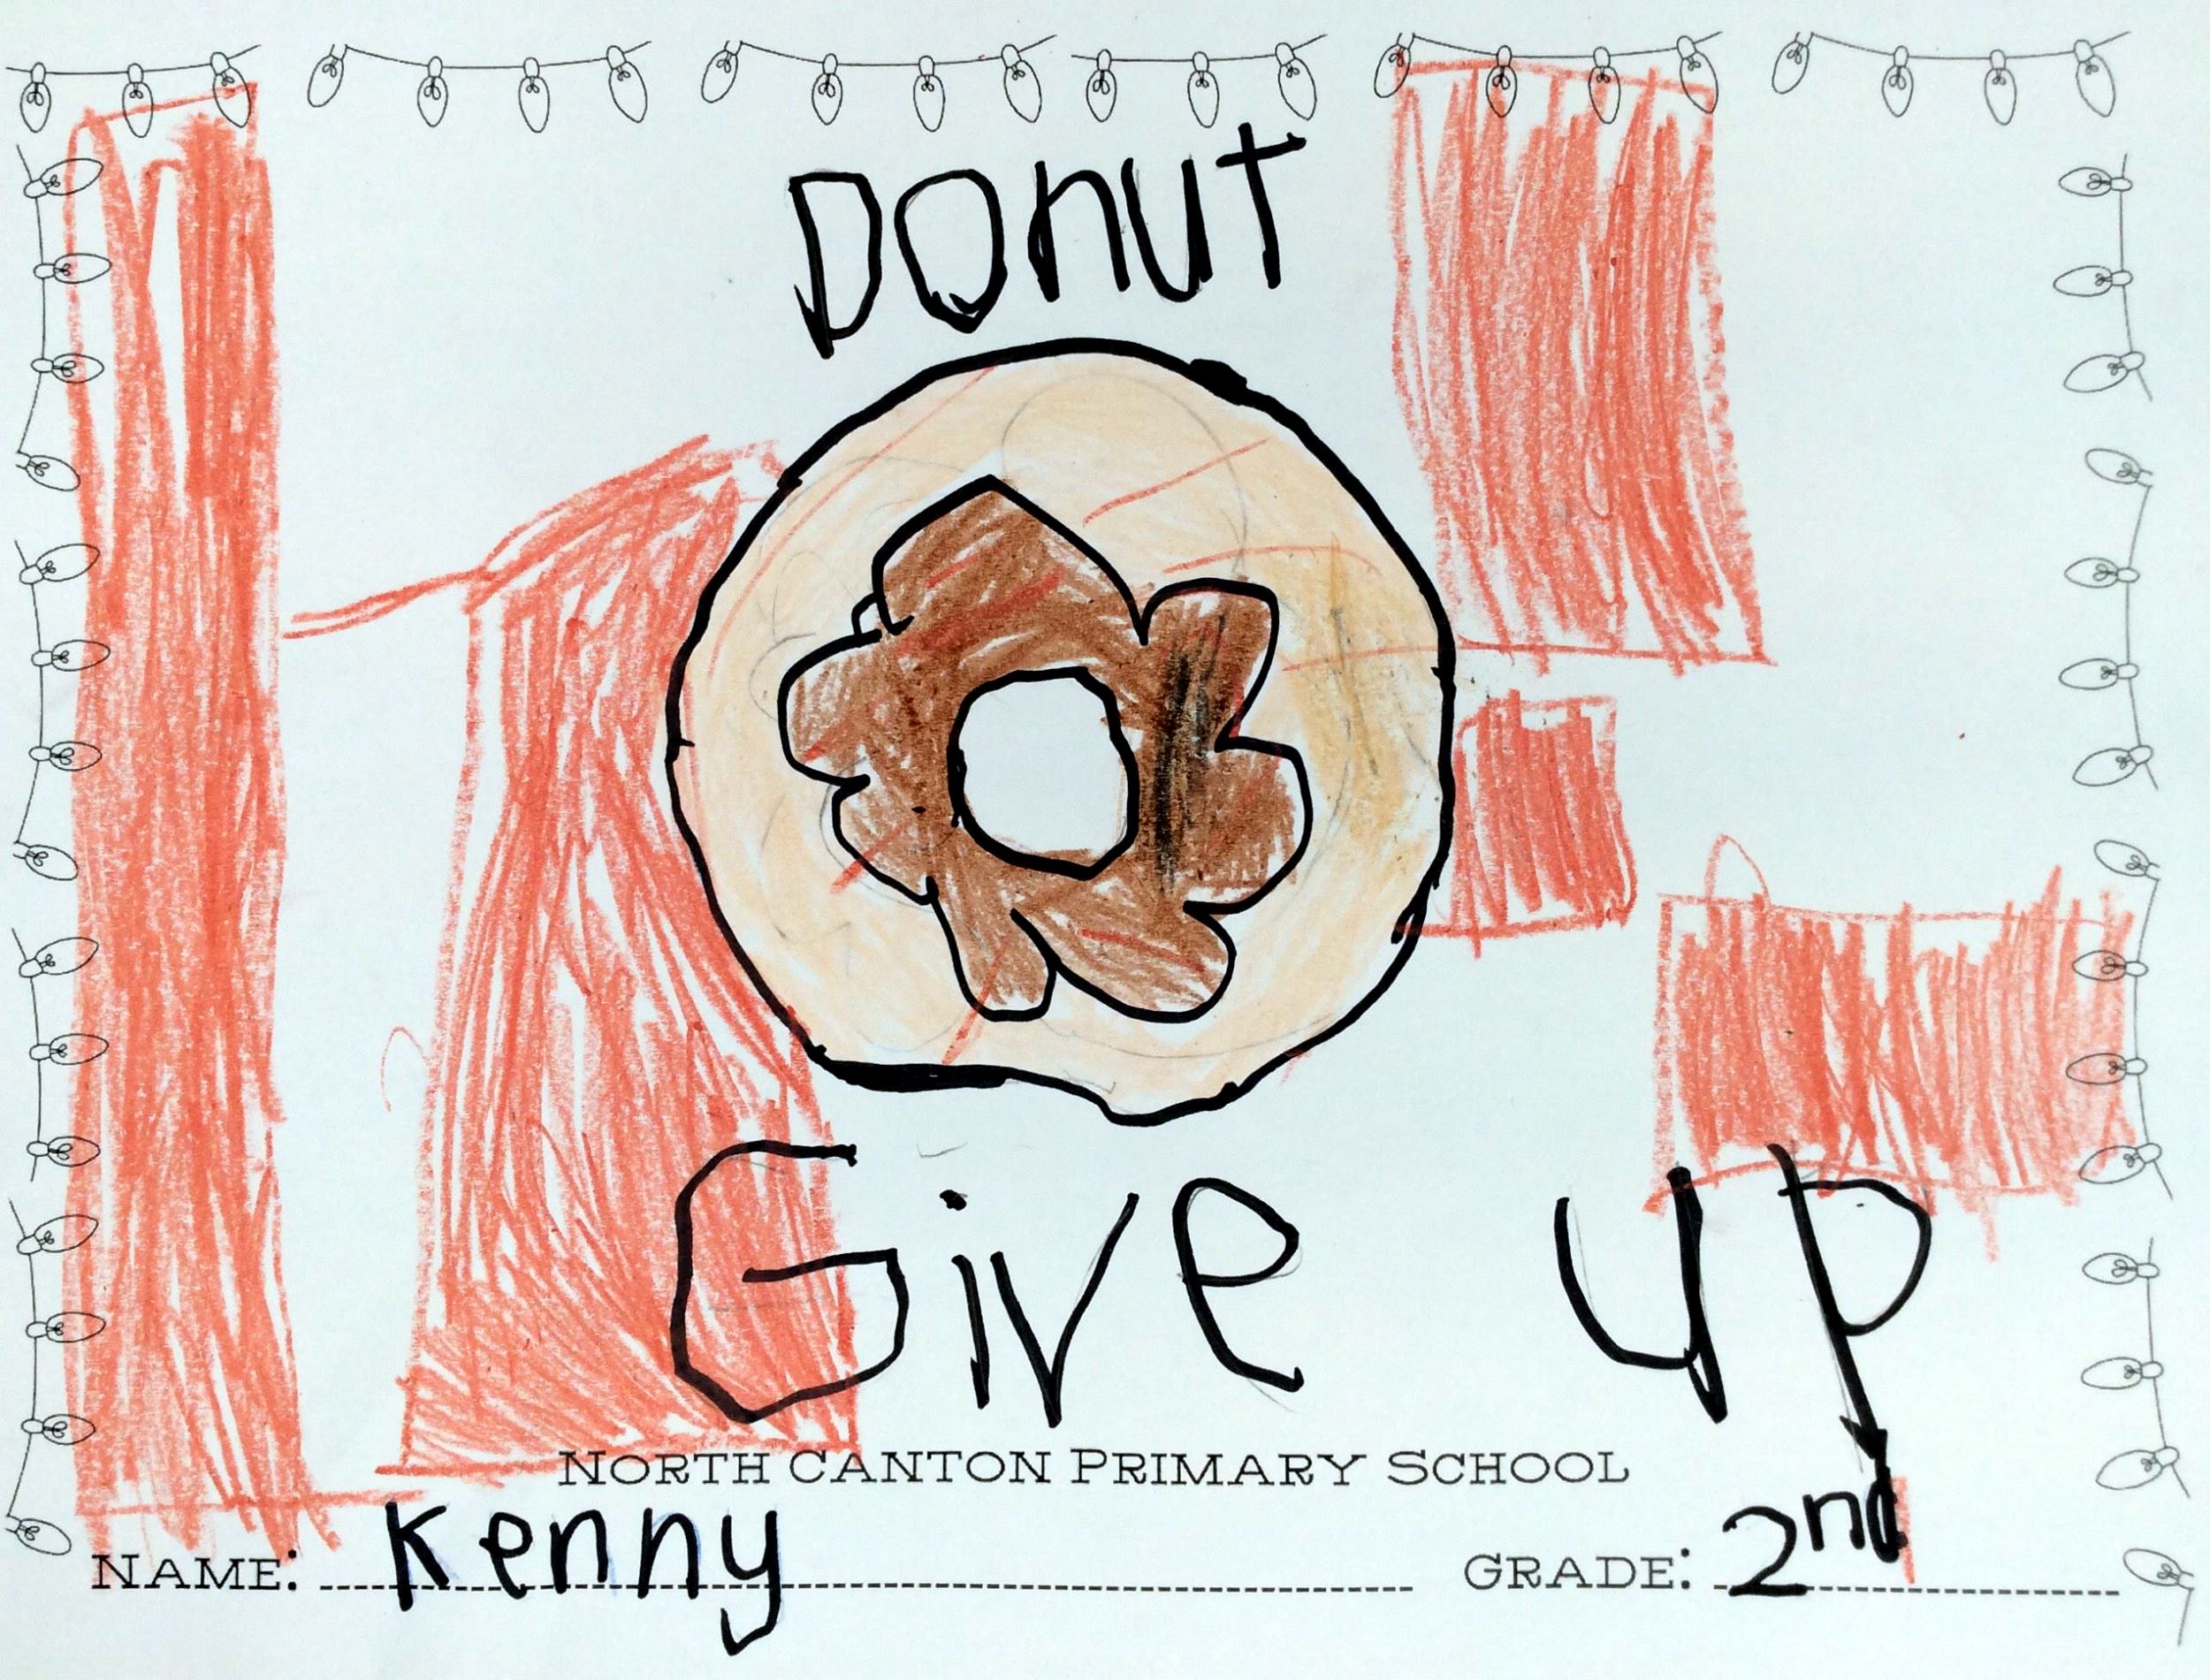 Donut
Give up
North Canton Primary School
Name: Kenny Grade: 2nd